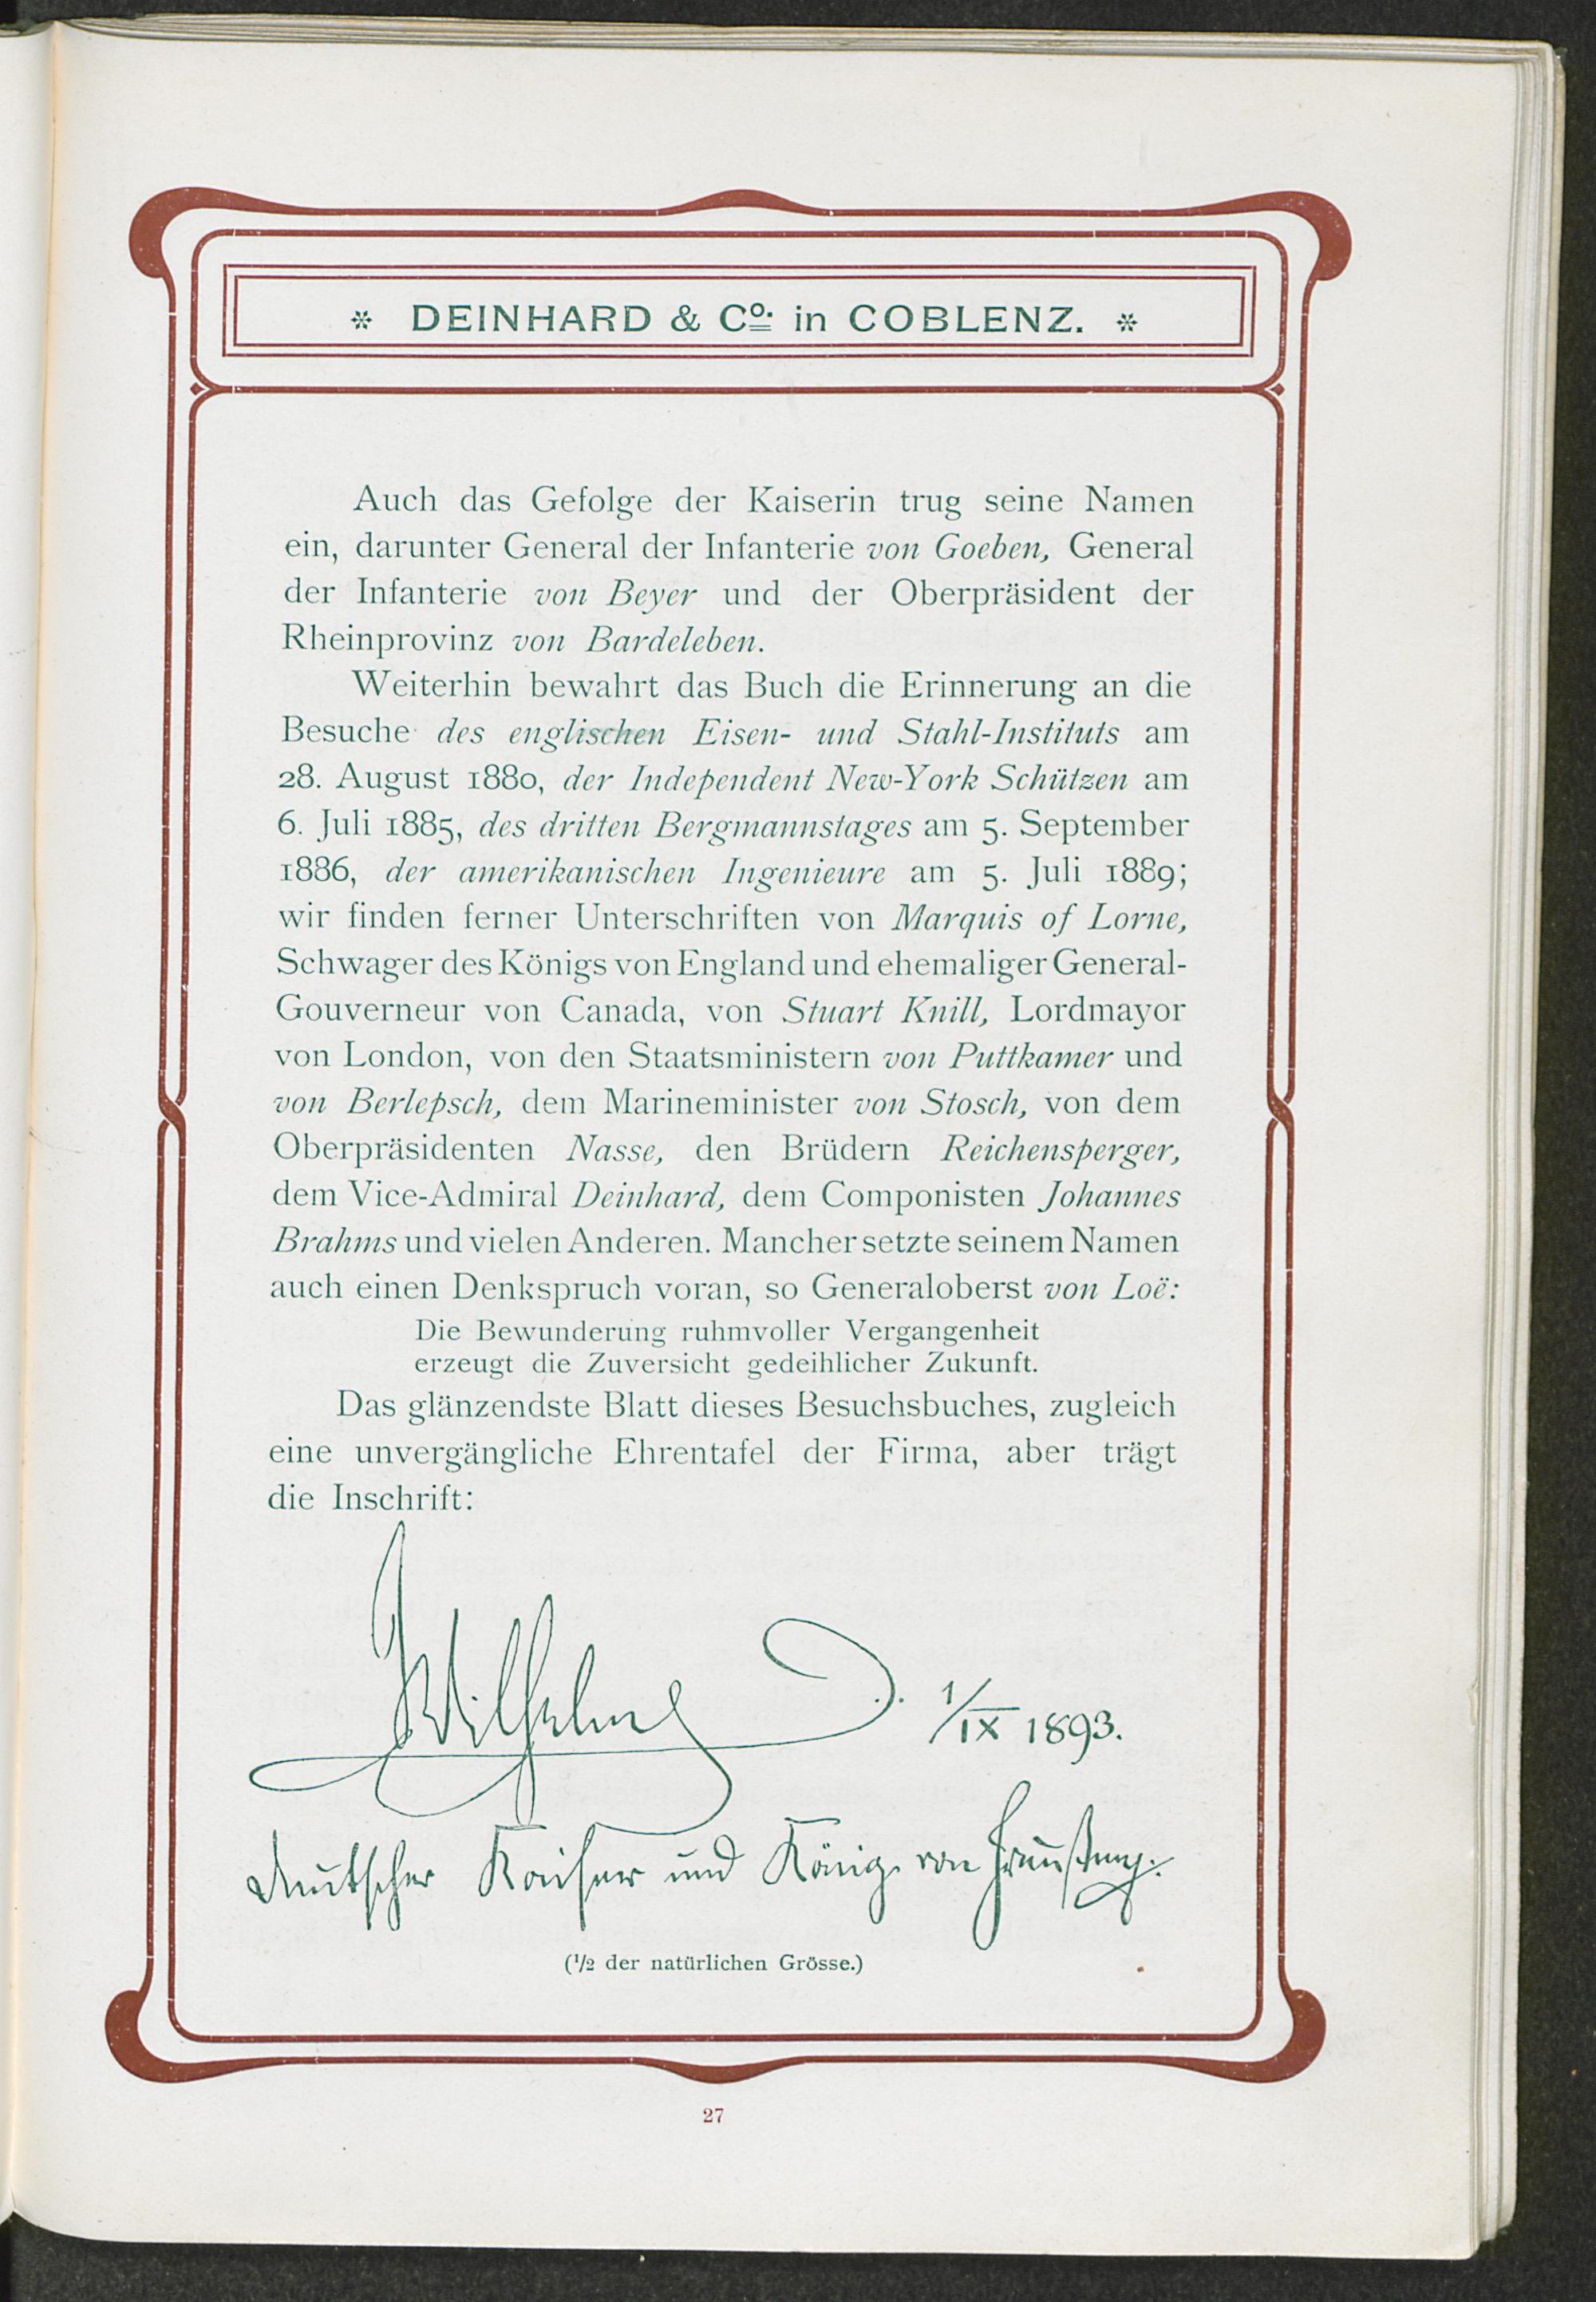 * DEINHARD & Co. in COBLENZ. *
Auch das Gefolge der Kaiserin trug seine Namen
ein, darunter General der Infanterie von Goeben, General
der Infanterie von Beyer und der Oberpräsident der
Rheinprovinz von Bardeleben.
Weiterhin bewahrt das Buch die Erinnerung an die
Besuche des englischen Eisen- und Stahl-Instituts am
28. August 1880, der Independent New-York Schützen am
6. Juli 1885, des dritten Bergmannstages am 5. September
1886, der amerikanischen Ingenieure am 5. Juli 1889;
wir finden ferner Unterschriften von Marquis of Lorne,
Schwager des Königs von England und ehemaliger General-
Gouverneur von Canada, von Stuart Knill, Lordmayor
von London, von den Staatsministern von Puttkamer und
von Berlepsch, dem Marineminister von Stosch, von dem
Oberpräsidenten Nasse, den Brüdern Reichensperger,
dem Vice-Admiral Deinhard, dem Componisten Johannes
Brahms und vielen Anderen. Mancher setzte seinem Namen
auch einen Denkspruch voran, so Generaloberst von Loë:
Die Bewunderung ruhmvoller Vergangenheit
erzeugt die Zuversicht gedeihlicher Zukunft.
Das glänzendste Blatt dieses Besuchsbuches, zugleich
eine unvergängliche Ehrentafel der Firma, aber trägt
die Inschrift:
Wilhelm 1/IX 1893.
deutscher Kaiser und König von Preußen.
(1/2 der natürlichen Grösse.)
27